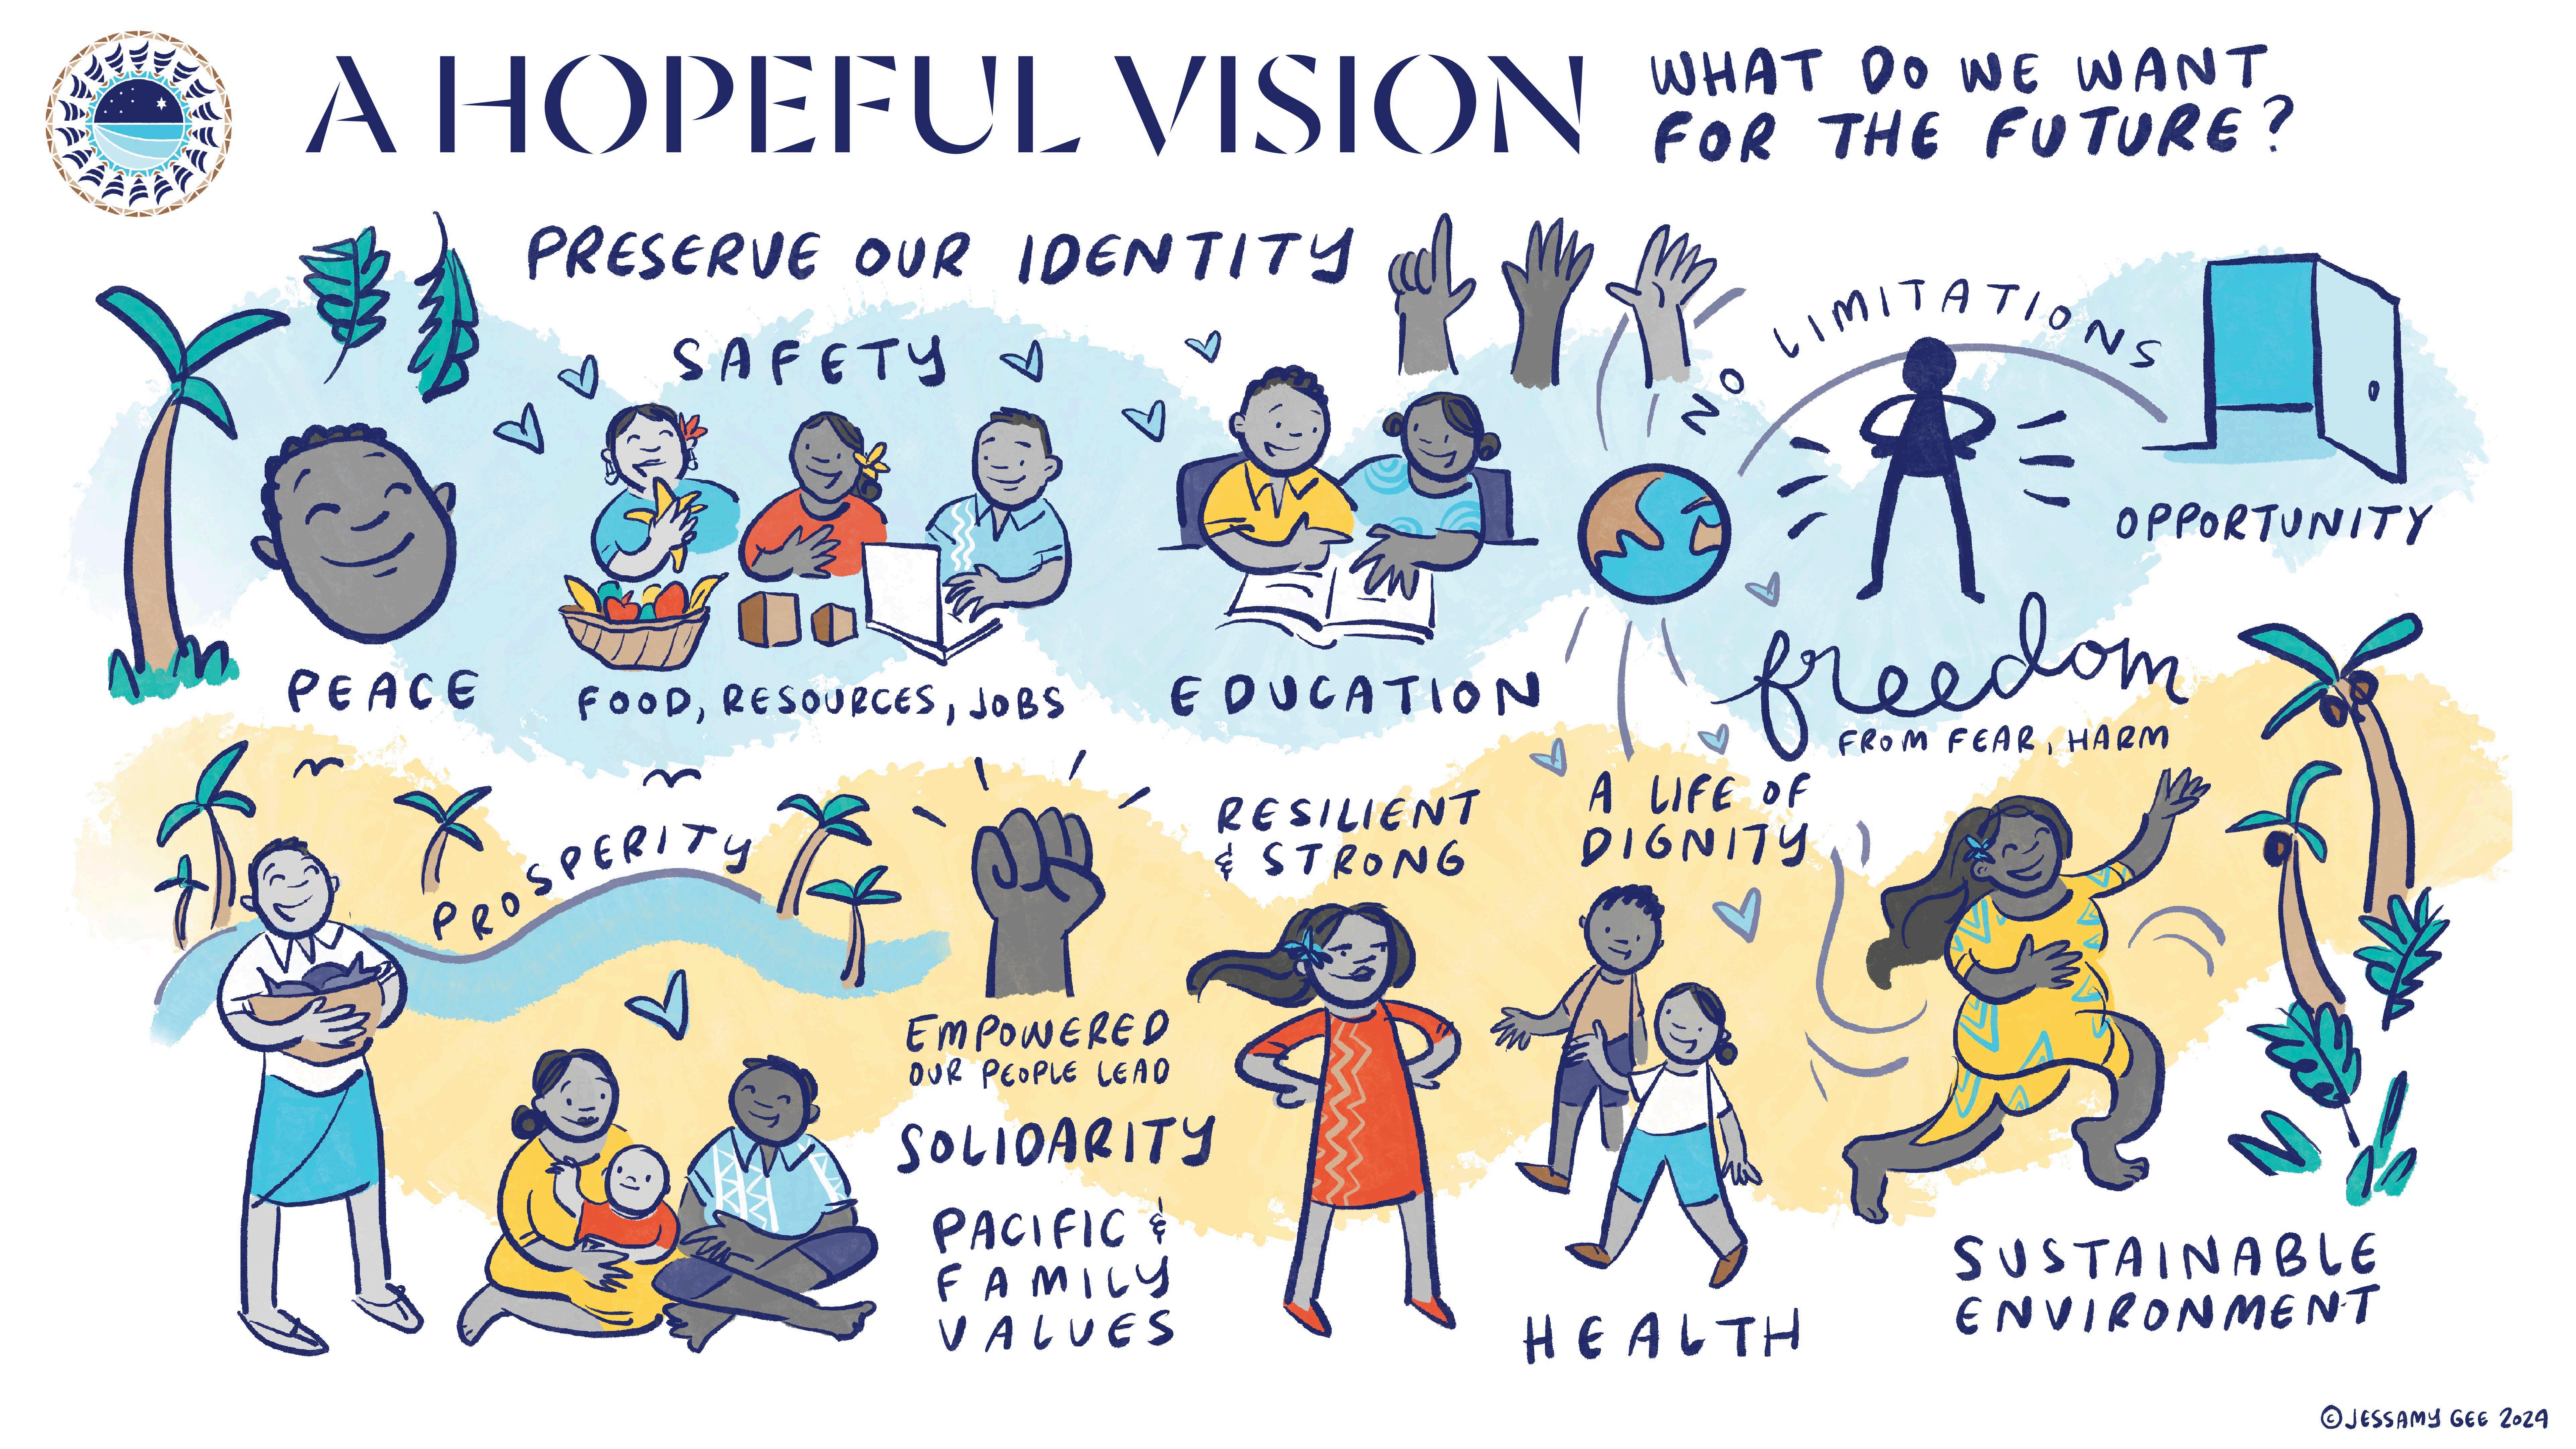 A HOPEFUL VISION
WHAT DO WE WANT
FOR THE FUTURE?
PRESERVE OUR IDENTITY
SAFETY
NO LIMITATIONS
OPPORTUNITY
PEACE
FOOD, RESOURCES, JOBS
EDUCATION
freedom
FROM FEAR, HARM
PROSPERITY
RESILIENT
& STRONG
A LIFE OF
DIGNITY
EMPOWERED
OUR PEOPLE LEAD
SOLIDARITY
PACIFIC &
FAMILY
VALUES
HEALTH
SUSTAINABLE
ENVIRONMENT
©JESSAMY GEE 2024